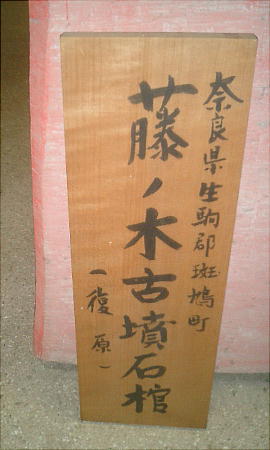 奈良県生駒郡斑鳩町
藤ノ木古墳石棺
(復原)